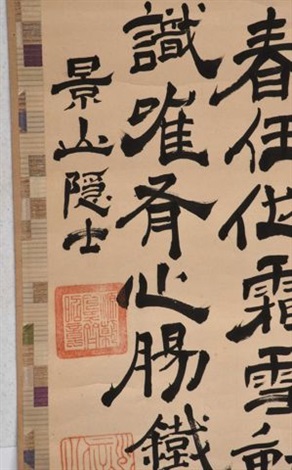 春任他霜雪
識唯有心腸鐵
景山隱士